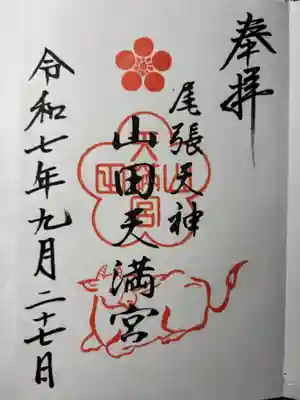 奉拝
尾張天神
山田天満宮
令和七年九月二十七日